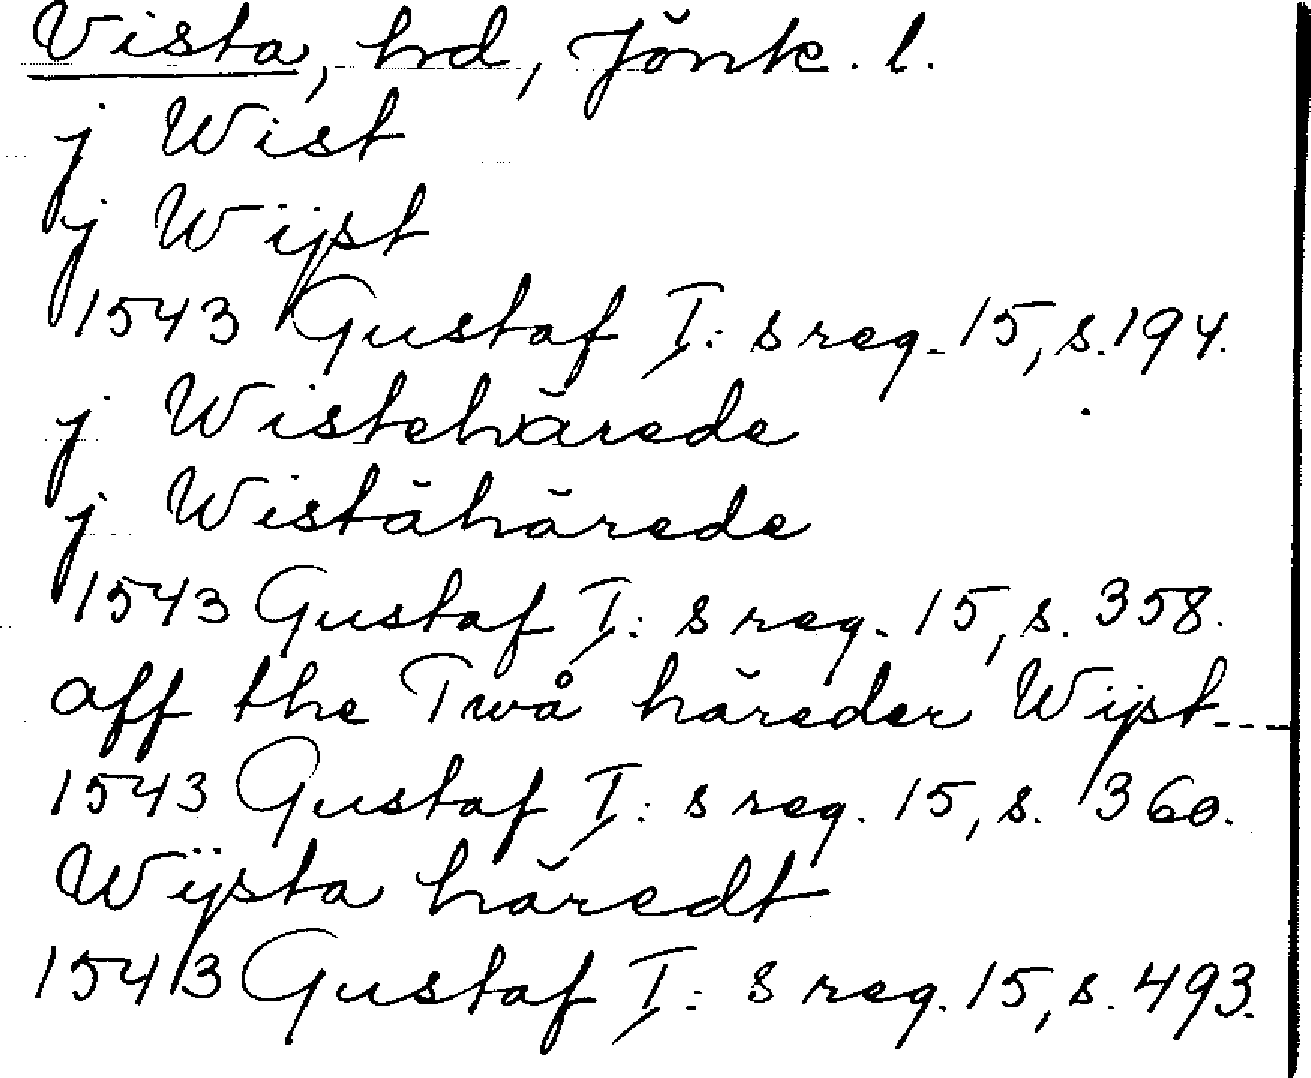 Vista, hrd, Jönk. l.
j Wist
j Wijst
1543 Gustaf I:s reg. 15, s. 194.
j Wistehärede
j Wistähärede
1543 Gustaf I:s reg. 15, s. 358.
aff the Twå häreder Wijst---
1543 Gustaf I:s reg. 15, s. 360.
Wijsta häredt
1543 Gustaf I:s reg. 15, s. 493.